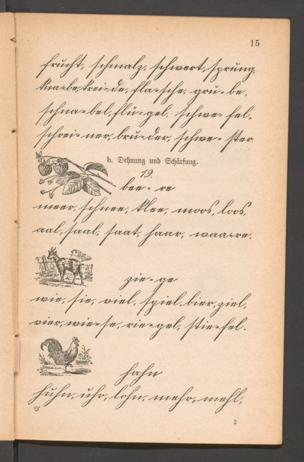 15
frucht, schmalz, schwert, sprung,
kna=be, krei=de, fla=sche, gru=be,
schna=bel, flü=gel, schwe=fel,
schrei=ner, bru=der, schwe=ster
b. Dehnung und Schärfung.
19.
bee=re
meer, schnee, klee, moos, loos,
aal, saal, saat, haar, waa=re.
zie=ge
wie, sie, viel, spiel, bier, ziel,
vier, wie=se, rie=gel, stie=fel.
hahn
huhn, uhr, lohn, mehr, mehl,
2